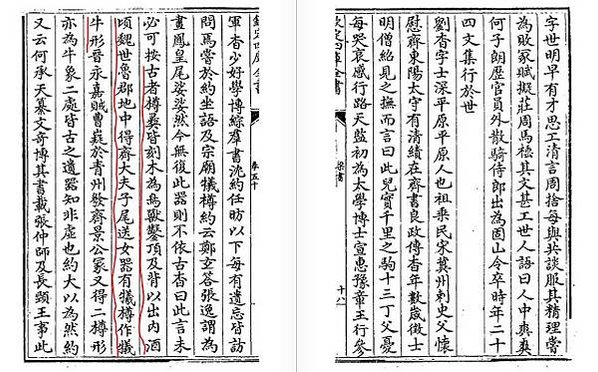 字世明早有才思工清言周捨每與共談服其精理嘗
為敗冢賦擬莊周馬棰其文甚工世人語曰人中爽爽
何子朗歷官員外散騎侍郎出為固山令卒時年二十
四文集行於世
劉杳字士深平原平原人也祖乘民宋冀州刺史父懷
慰齊東陽太守有清績在齊書良政傳杳年數歲徵士
明僧紹見之撫而言曰此兒實千里之駒十三丁父憂
每哭哀感行路天監初為太學博士宣惠豫章王行參
欽定四庫全書
梁書
十八
欽定四庫全書
卷五十
軍杳少好學博綜羣書沈約任昉以下每有遺忘皆訪
問焉嘗於約坐語及宗廟犧樽約云鄭玄答張逸謂為
畫鳳皇尾娑娑然今無復此器則不依古杳曰此言未
必可按古者樽彝皆刻木為鳥獸鑿頂及背以出內酒
頃魏世魯郡地中得齊大夫子尾送女器有犧樽作犧
牛形晉永嘉賊曹嶷於青州發齊景公冢又得二樽形
亦為牛象二處皆古之遺器知非虛也約大以為然約
又云何承天纂文奇博其書載張仲師及長頸王事此